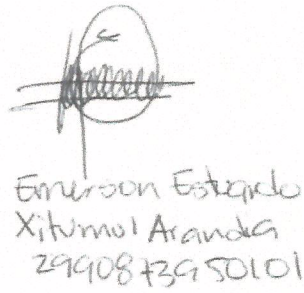 Emerson Estuardo
Xitumul Aranda
2990873950101